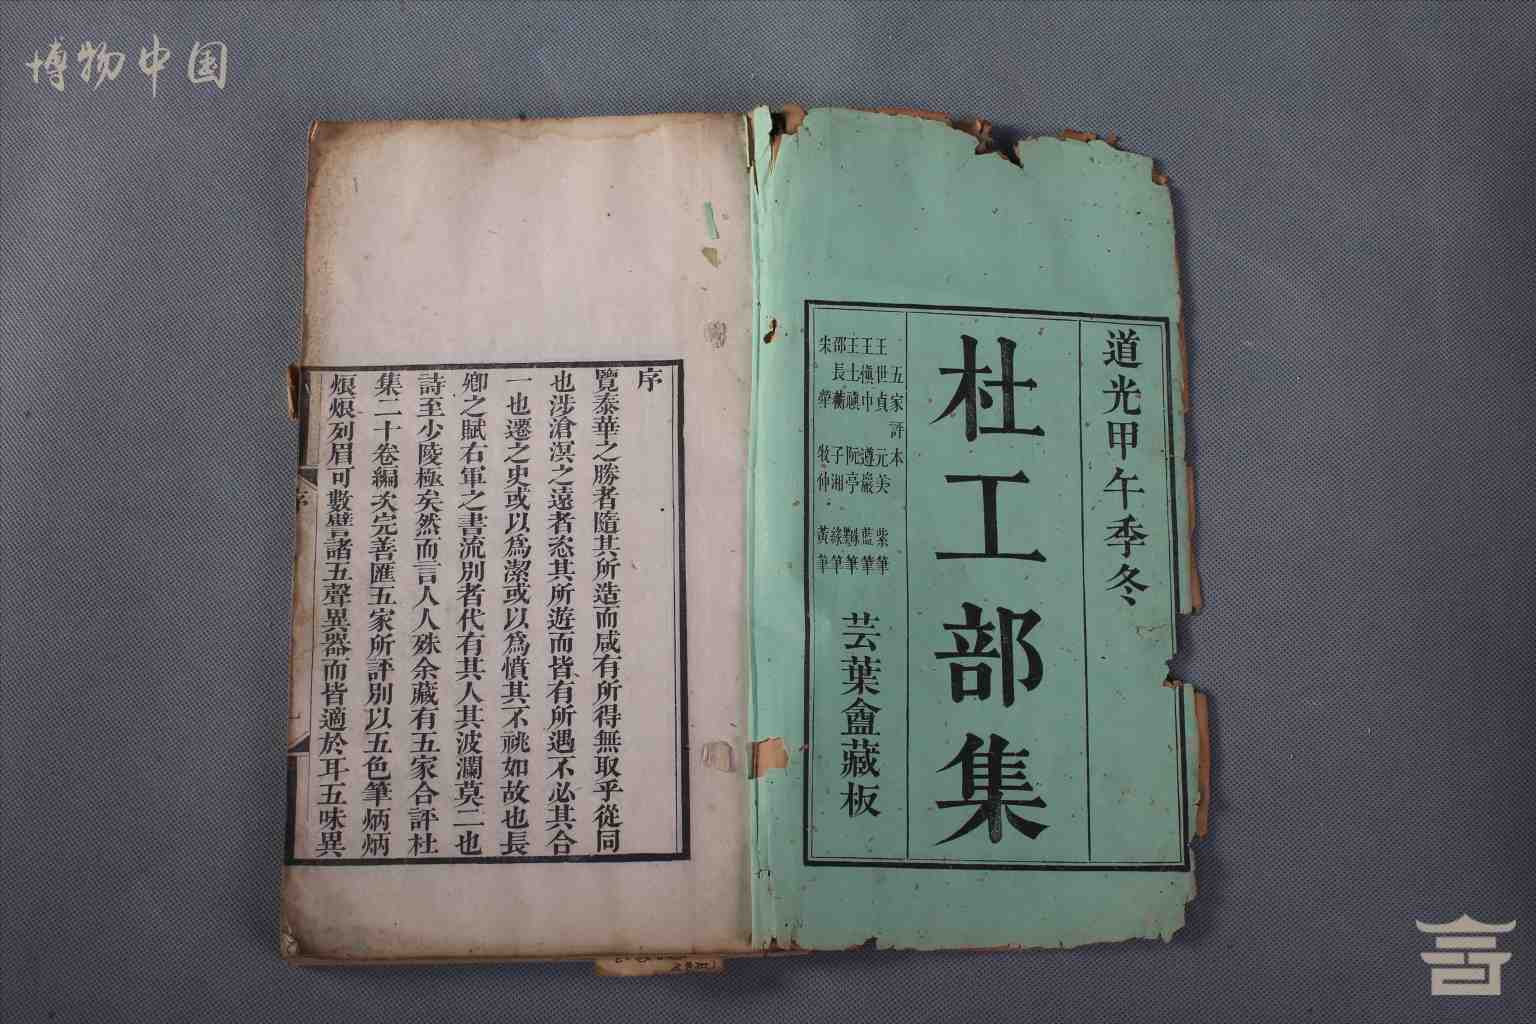 博物中国
道光甲午季冬
杜工部集
五家評本
王世貞 元美 紫筆
王慎中 遵巖 藍筆
王士禛 阮亭 硃筆墨筆
邵長蘅 子湘 綠筆
宋犖 牧仲 黃筆
芸葉盦藏板
序
覽泰華之勝者隨其所造而咸有所得無取乎從同
也涉滄溟之遠者恣其所遊而皆有所遇不必其合
一也遷之史或以為潔或以為憤其不祧如故也長
卿之賦右軍之書流別者代有其人其波瀾莫二也
詩至少陵極矣然而言人人殊余藏有五家合評杜
集二十卷編次完善匯五家所評別以五色筆炳炳
烺烺列眉可數譬諸五聲異器而皆適於耳五味異
序